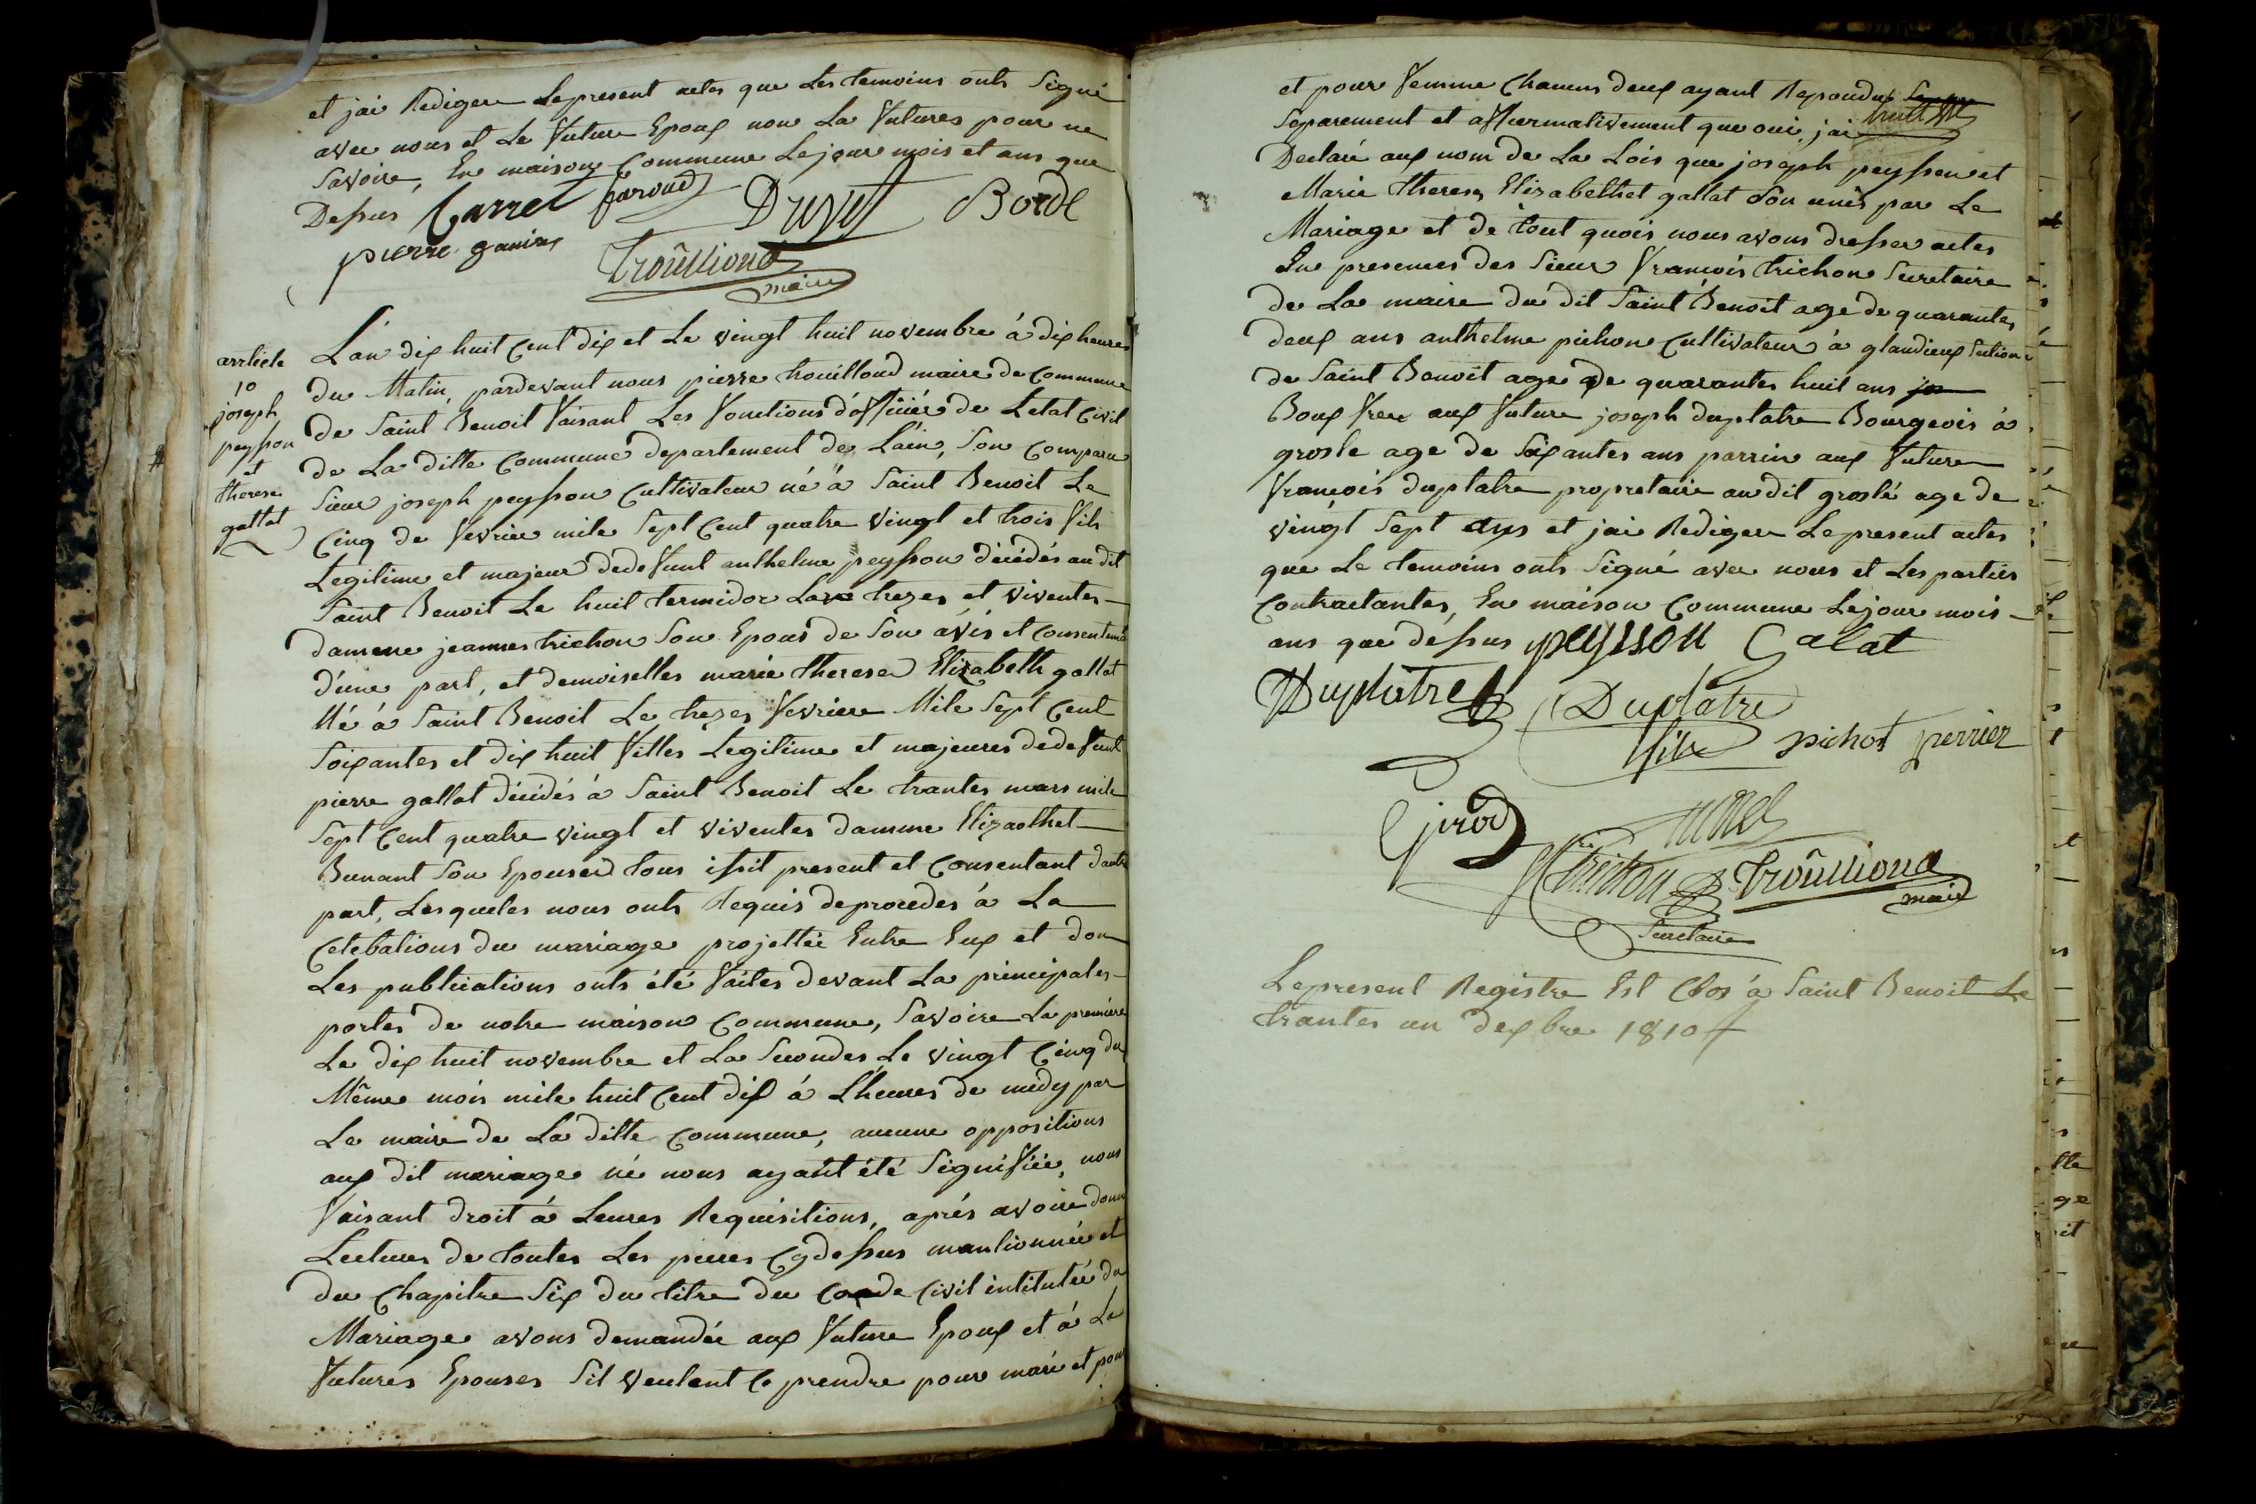 et jai Rediger Lepresent actes que Les temoins onts Signé
avec nous et Le Future Epoux non La Futures pour ne
Savoire, En maison Commune Lejour mois et ans que
Dessus Carret Duvet Borde
pierre
Trouilloud
maire
article
10
joseph
peysson
et
therese
gallat
L'an dix huit Cent dix et Le vingt huit novembre à dix heures
du Matin, pardevant nous pierre trouilloud maire de Commune
de Saint Benoit Faisant Les Fonctions d'officiér de Letat Civil
de La ditte Commune departement de L'ain, Son Comparu
Sieur joseph peysson Cultivateur né à Saint Benoit Le
Cinq de Fevrier mile Sept Cent quatre vingt et trois Fils
Legitime et majeur dedeffunt anthelme peysson décédés au dit
Saint Benoit Le huit termidor Lan trezes et viventes
damme jeannes trichon Son Epous de Son avis et Consentemt
d'une part, et demoiselles marie therese Elizabeth gallat
Né à Saint Benoit Le trezes Fevriere Mile Sept Cent
Soixantes et dix huit Filles Legitime et majeures dedeffunt
pierre gallat décédés à Saint Benoit Le trantes mars mile
Sept Cent quatre vingt et viventes damme Elizaethet
Bunant Son Epouses tous issit present et Consentant d'autre
part, Lesqueles nous onts Requis deproceder à La
Celebations du mariage projettée Entre Eux et don
Les publications onts été Faites devant La principales
portes de notre maison Commune, Savoire La premiere
Le dix huit novembre et La Secondes Le vingt Cinq du
Même mois mile huit Cent dix à L'heures de midy par
Le maire de La ditte Commune, aucune oppositions
aux dit mariage né nous ayant été Signifiée, nous
Faisant droit à Leures Requisitions, aprés avoire donn
Lectures de toutes Les pieces Cydessus mantionnée et
du Chapitre Six du titre du Code Civil intitulée du
Mariage avons demandée aux Future Epoux et à La
Futures Epouses Sil veulent Ce prendre pour mari et pour
et pour Femme Chacuns deux ayant Repondus
Separement et affiermativement que oui, jai
Declaré aux nom de La Lois que joseph peysson et
Marie therese Elizabethet gallat Son unis par Le
Mariage et de tout quois nous avons dresser actes
En presences des Sieur Francois trichon Secretaire
de La maire du dit Saint Benoit age de quarantes
deux ans anthelme pichon Cultivateur à glandieux Section
de Saint Benoit age de quarantes huit ans
Boux Frer aux Future joseph duplatre Bourgeois à
grosle age de Soixantes ans parrin aux Future
François duplatre propretaire au dit groslé age de
vingt Sept ans et jai Rediger Lepresent actes
que Le temoins onts Signé avec nous et Les parties
Contractantes, En maison Commune Lejour mois
ans que dessus peysson Galat
Duplatre Duplatre
fils pichot perrier
Girod
morel
Trichon Trouilloud
maire
Secretaire
Lepresent Registre Est Clos à Saint Benoit Le
trantes un dexbre 1810